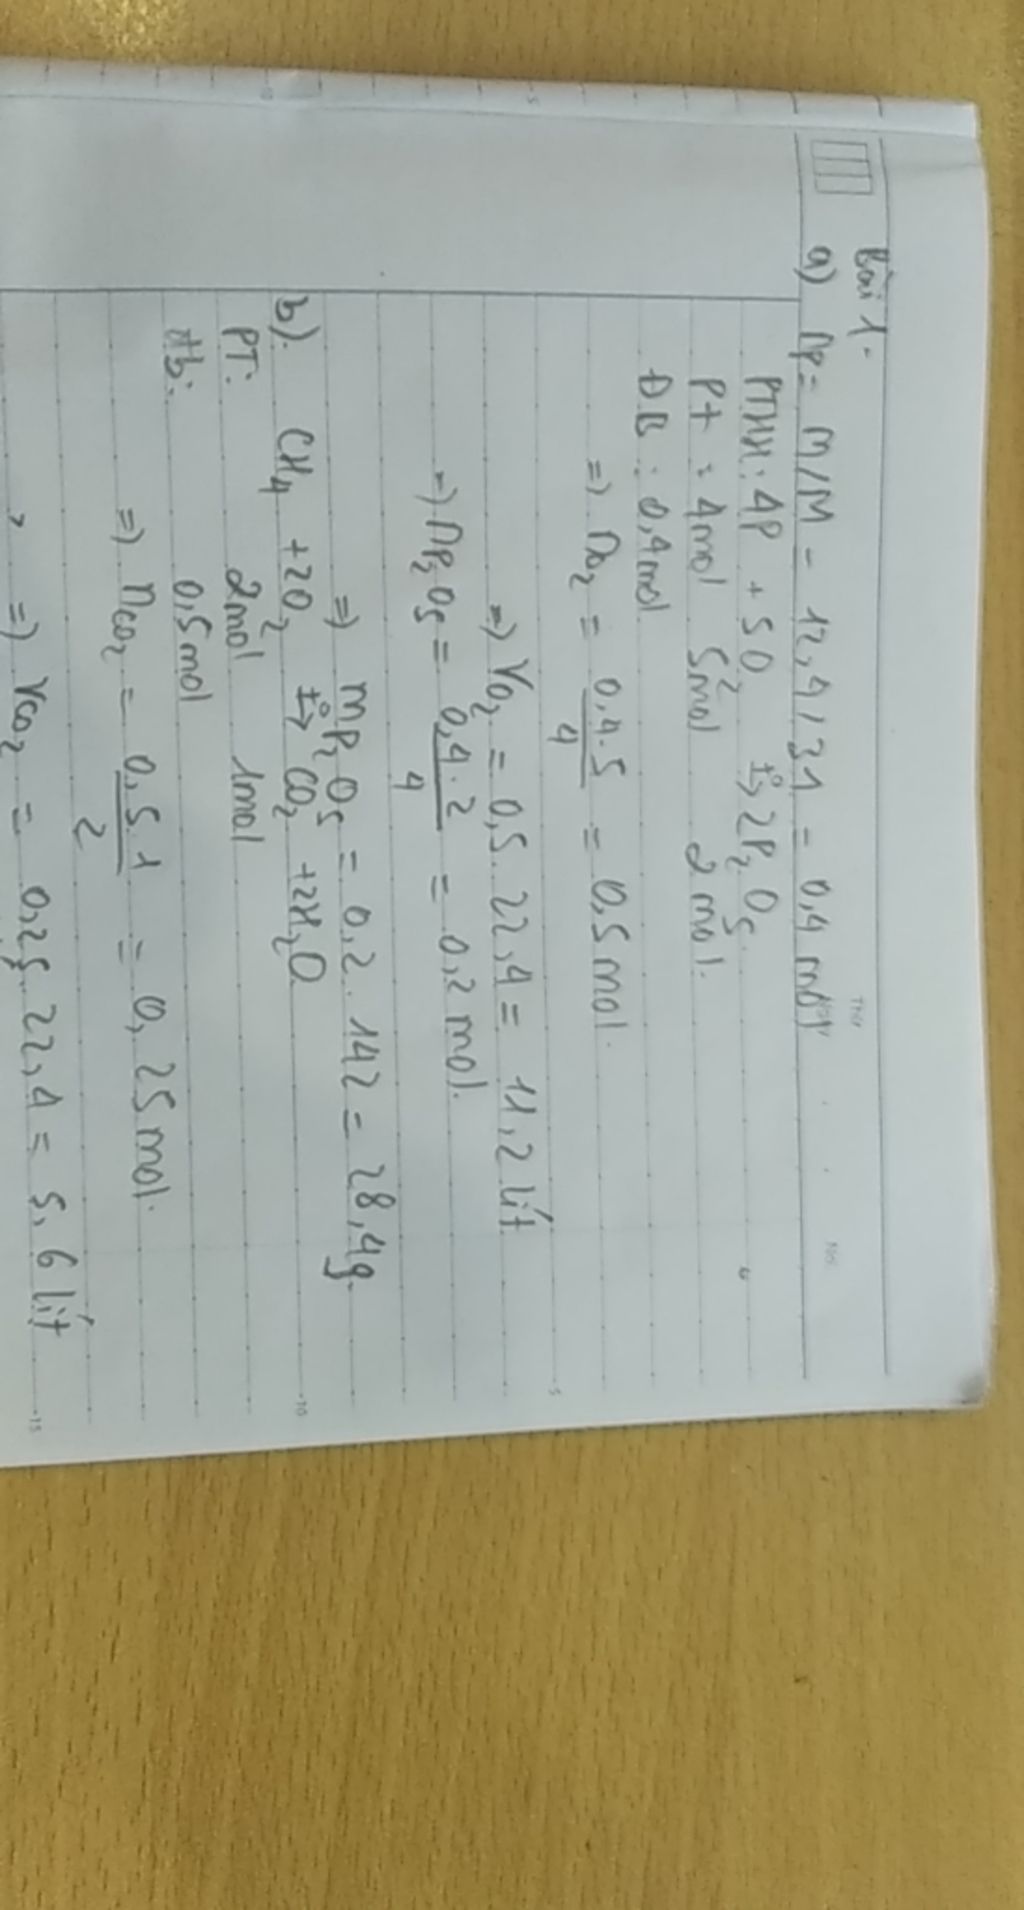 Bài 1.
a) np = m/M = 12,4/31 = 0,4 mol
PTHH: 4P + 5O2 t°→ 2P2O5
Pt : 4mol 5mol 2 mol.
ĐB : 0,4mol
=> nO2 = 0,4.5/4 = 0,5 mol.
=> VO2 = 0,5.22,4 = 11,2 lít
=> nP2O5 = 0,4.2/4 = 0,2 mol.
=> mP2O5 = 0,2.142 = 28,4g.
b). CH4 + 2O2 t°→ CO2 + 2H2O
PT: 2mol 1mol
đb: 0,5mol
=> nCO2 = 0,5.1/2 = 0,25 mol.
=> VCO2 = 0,25.22,4 = 5,6 lít